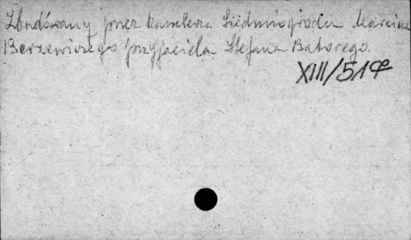 Zbudowany przez kanclerza Siedmiogrodu Marcina
Berzewiczego przyjaciela Stefana Batorego.
XIII/519